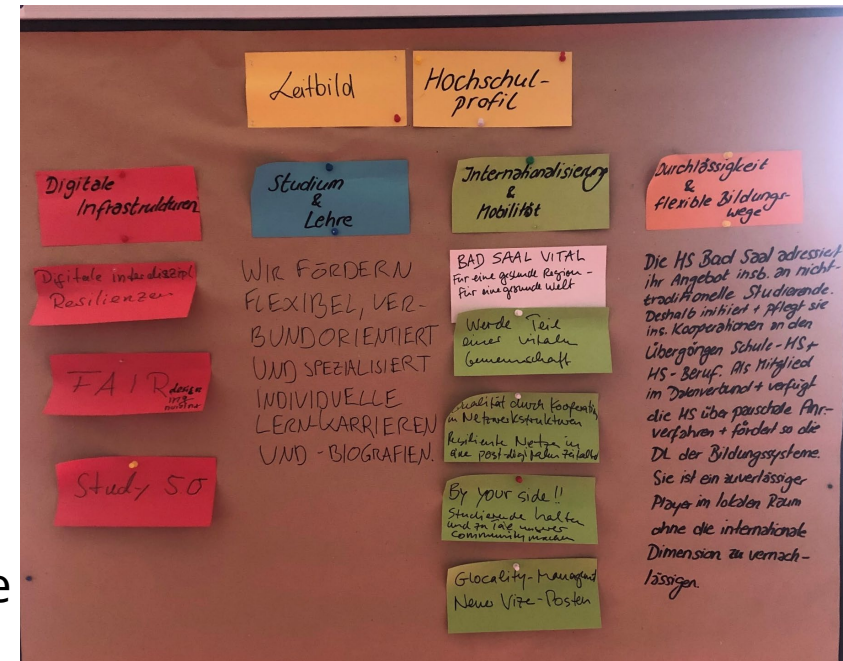 Leitbild
Hochschul-
profil
Digitale
Infrastrukturen
Digitale interdiszipl.
Resilienzen
FAIR
Study 50
Studium
&
Lehre
WIR FÖRDERN
FLEXIBEL, VER-
BUNDORIENTIERT
UND SPEZIALISIERT
INDIVIDUELLE
LERN-KARRIEREN
UND -BIOGRAFIEN.
Internationalisierung
&
Mobilität
BAD SAAL VITAL
Für eine gesunde Region -
Für eine gesunde Welt
Werde Teil
einer vitalen
Gemeinschaft
durch Kooperation
in Netzwerkstrukturen
Resiliente Netze in
post-digitalen Zeitalter
By your side!!
Studierende halten
und zu Teile unserer
Community machen
Glocality-Management
Neuer Vize-Posten
Durchlässigkeit
&
flexible Bildungs-
wege
Die HS Bad Saal adressiert
ihr Angebot insb. an nicht-
traditionelle Studierende.
Deshalb initiiert + pflegt sie
ins. Kooperationen an den
Übergängen Schule-HS +
HS - Beruf. Als Mitglied
im Datenverbund + verfügt
die HS über pauschale Anr-
verfahren + fördert so die
DL der Bildungssysteme.
Sie ist ein zuverlässiger
Player im lokalen Raum
ohne die internationale
Dimension zu vernach-
lässigen.
e